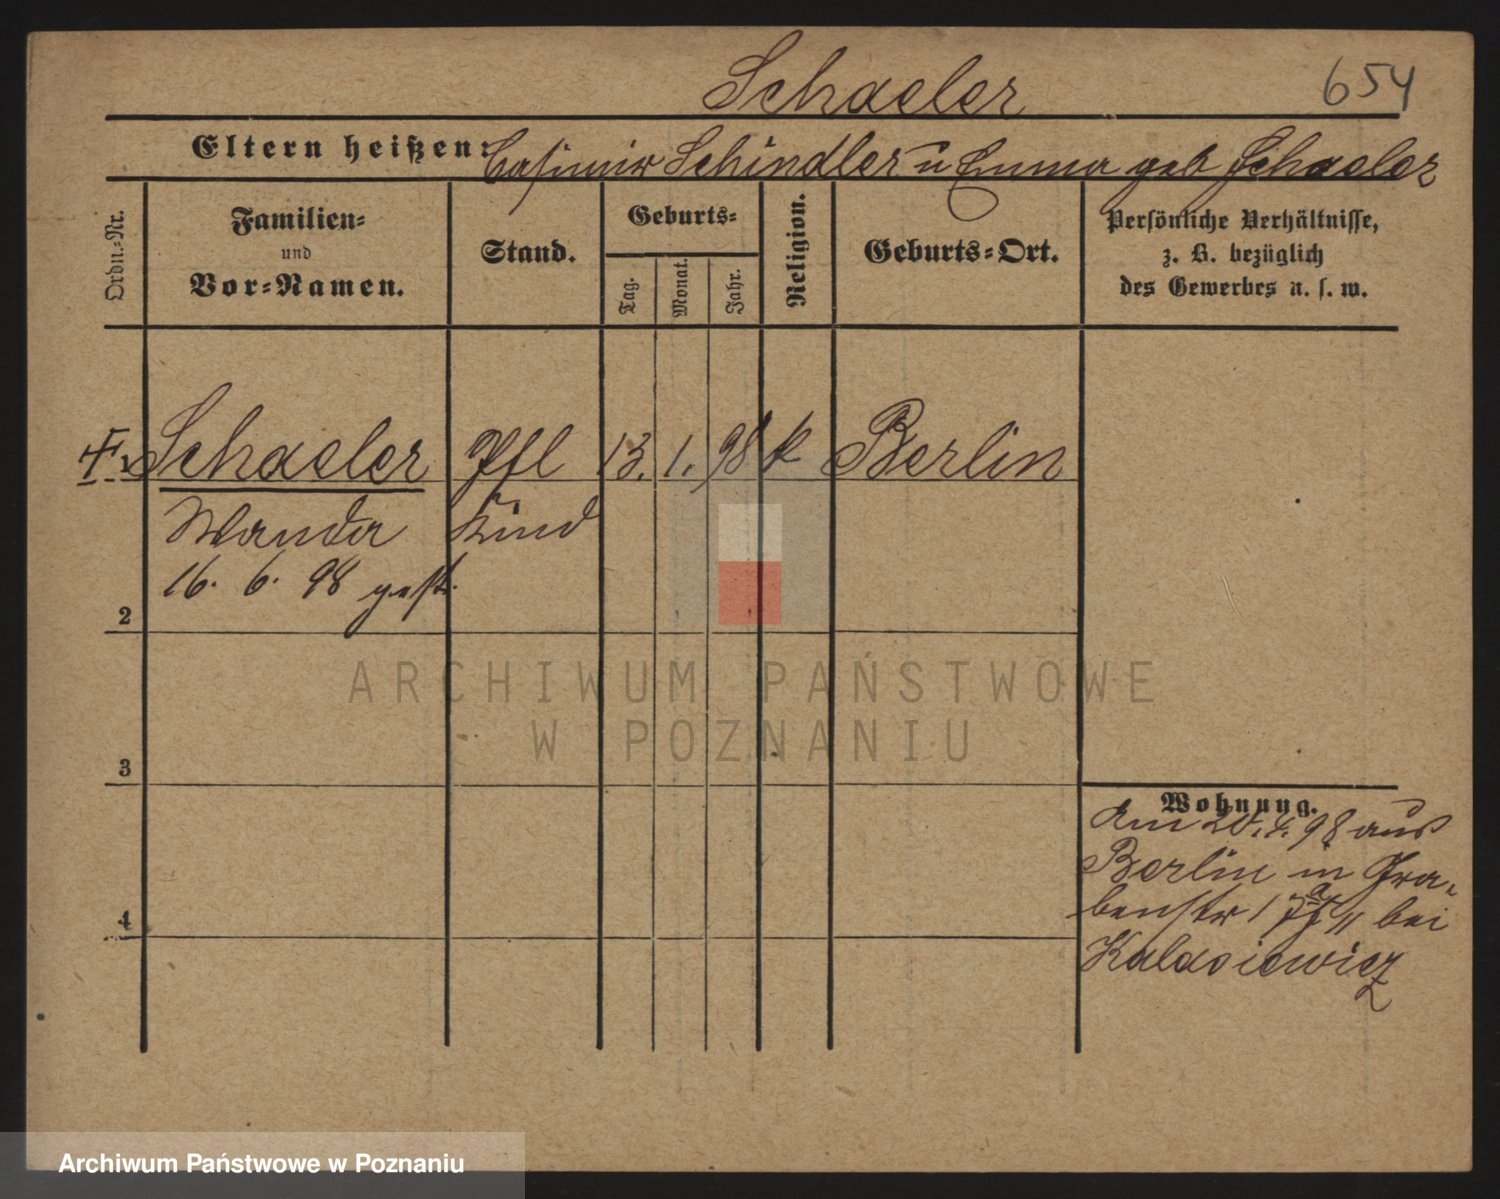 Schaeler
654
Eltern heißen: Casimir Schindler u Emma geb Schaeler
Ordn.-Nr.
Familien-
und
Vor-Namen.
Stand.
Geburts-
Tag.
Monat.
Jahr.
Religion.
Geburts-Ort.
Persönliche Verhältnisse,
z. B. bezüglich
des Gewerbes u. s. w.
1 Schaeler Pfl 13. 1. 98 k Berlin
Wanda Kind
16. 6. 98 gest.
2
3
4
Wohnung.
Am 20. 4. 98 aus
Berlin in Gra-
benstr bei
ARCHIWUM PAŃSTWOWE
W POZNANIU
Archiwum Państwowe w Poznaniu